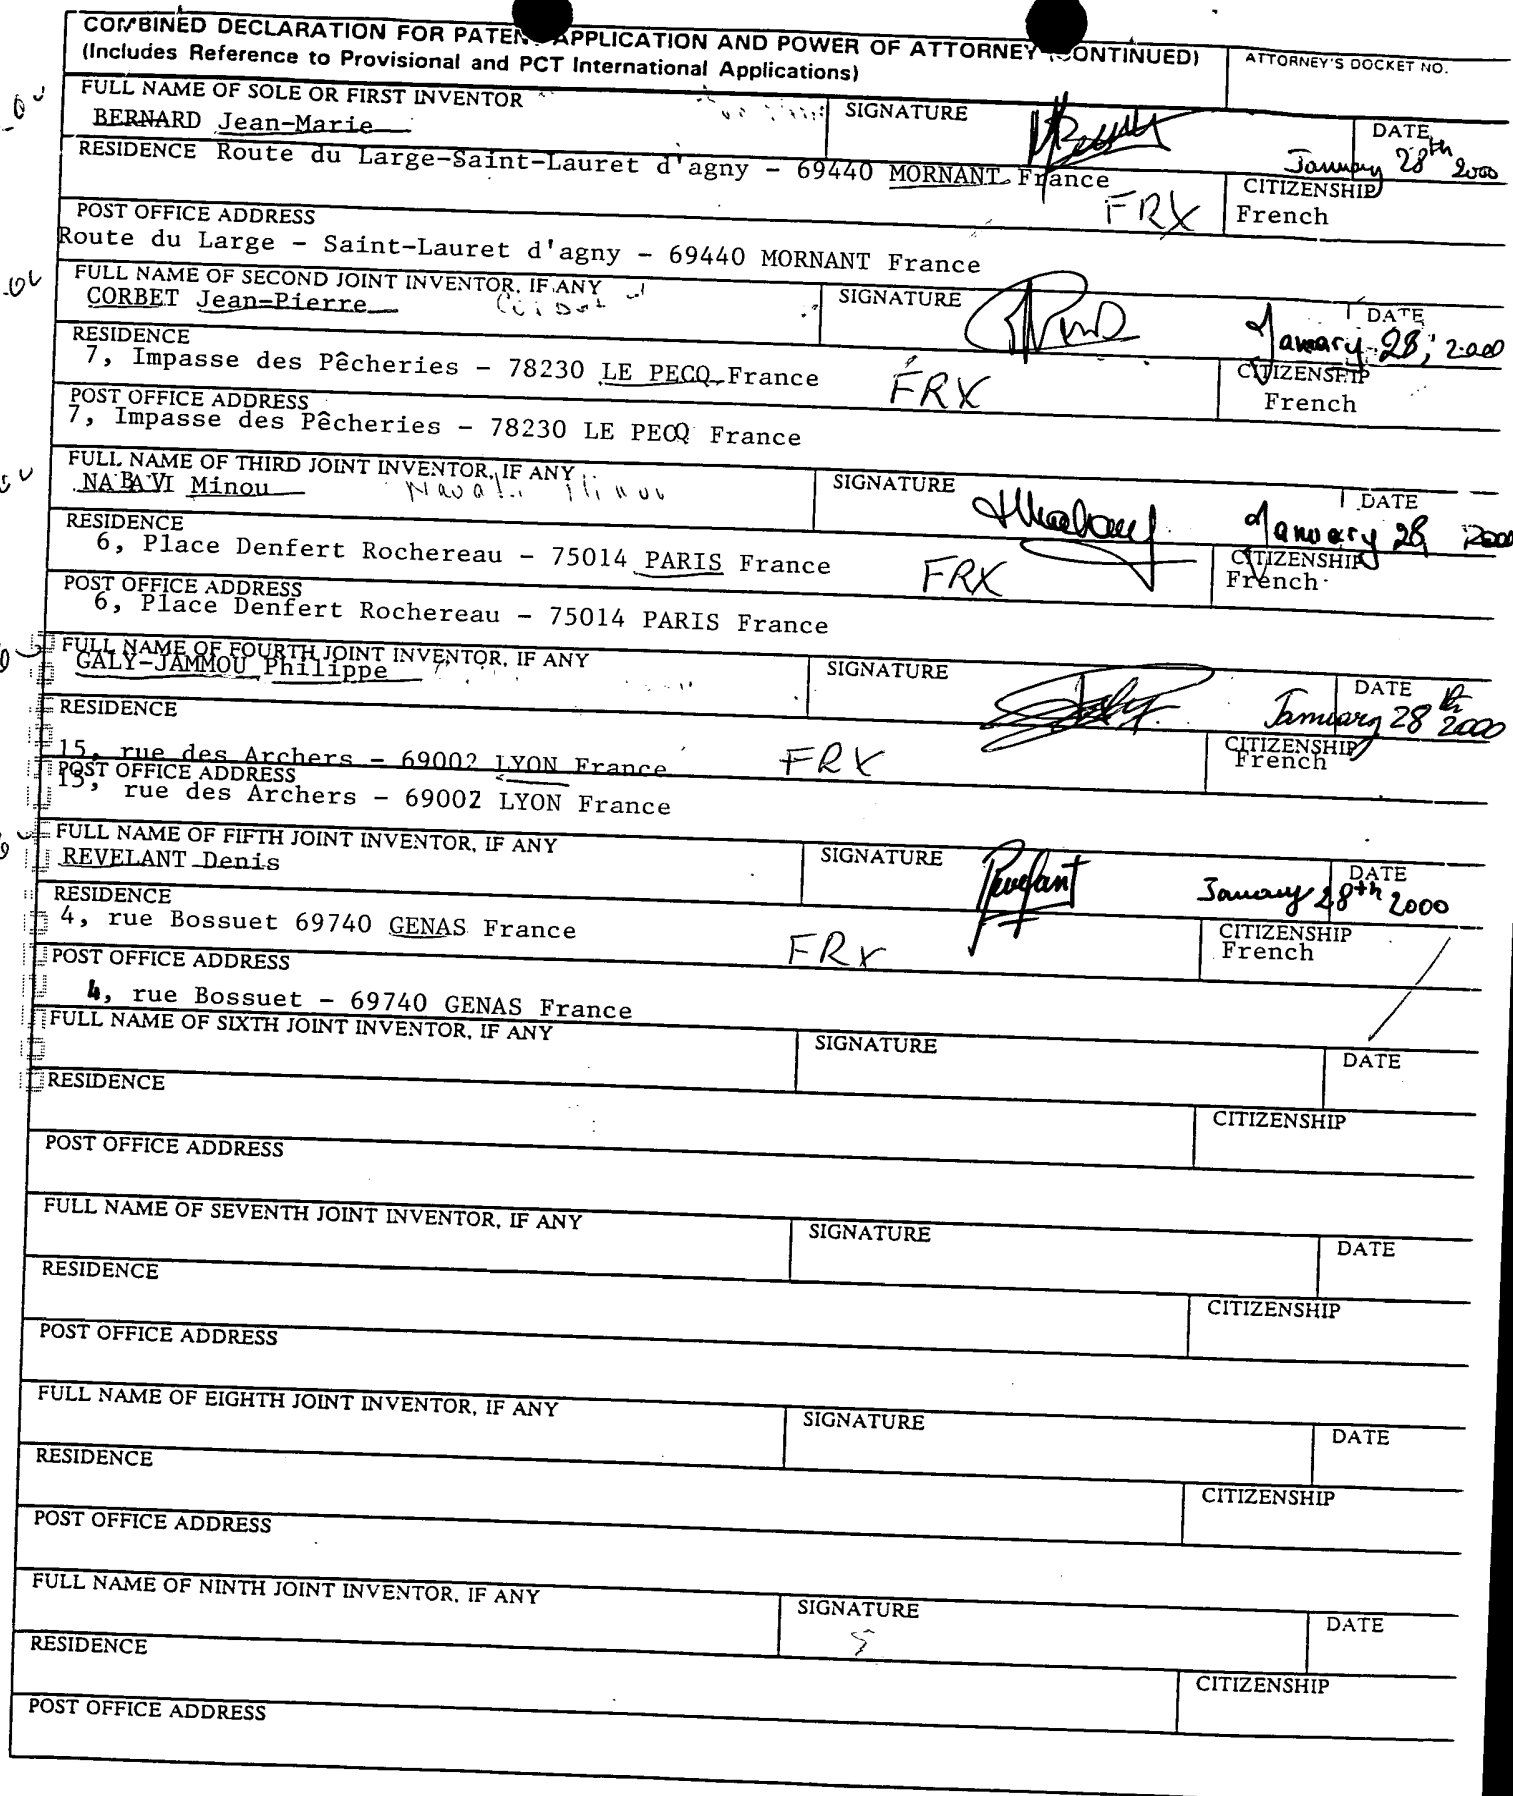 COMBINED DECLARATION FOR PATENT APPLICATION AND POWER OF ATTORNEY (CONTINUED)
(Includes Reference to Provisional and PCT International Applications)
ATTORNEY'S DOCKET NO.
FULL NAME OF SOLE OR FIRST INVENTOR
BERNARD Jean-Marie
SIGNATURE
DATE
January 28th 2000
RESIDENCE Route du Large-Saint-Lauret d'agny - 69440 MORNANT France
FRX
CITIZENSHIP
French
POST OFFICE ADDRESS
Route du Large - Saint-Lauret d'agny - 69440 MORNANT France
FULL NAME OF SECOND JOINT INVENTOR, IF ANY
CORBET Jean-Pierre
SIGNATURE
DATE
January 28, 2000
RESIDENCE
7, Impasse des Pêcheries - 78230 LE PECQ France
FRX
CITIZENSHIP
French
POST OFFICE ADDRESS
7, Impasse des Pêcheries - 78230 LE PECQ France
FULL NAME OF THIRD JOINT INVENTOR, IF ANY
NABAVI Minou
SIGNATURE
DATE
January 28, 2000
RESIDENCE
6, Place Denfert Rochereau - 75014 PARIS France
FRX
CITIZENSHIP
French
POST OFFICE ADDRESS
6, Place Denfert Rochereau - 75014 PARIS France
FULL NAME OF FOURTH JOINT INVENTOR, IF ANY
GALY-JAMMOU Philippe
SIGNATURE
DATE
January 28th 2000
RESIDENCE
15, rue des Archers - 69002 LYON France
FRX
CITIZENSHIP
French
POST OFFICE ADDRESS
15, rue des Archers - 69002 LYON France
FULL NAME OF FIFTH JOINT INVENTOR, IF ANY
REVELANT Denis
SIGNATURE
Revelant
DATE
January 28th 2000
RESIDENCE
4, rue Bossuet 69740 GENAS France
FRX
CITIZENSHIP
French
POST OFFICE ADDRESS
4, rue Bossuet - 69740 GENAS France
FULL NAME OF SIXTH JOINT INVENTOR, IF ANY
SIGNATURE
DATE
RESIDENCE
CITIZENSHIP
POST OFFICE ADDRESS
FULL NAME OF SEVENTH JOINT INVENTOR, IF ANY
SIGNATURE
DATE
RESIDENCE
CITIZENSHIP
POST OFFICE ADDRESS
FULL NAME OF EIGHTH JOINT INVENTOR, IF ANY
SIGNATURE
DATE
RESIDENCE
CITIZENSHIP
POST OFFICE ADDRESS
FULL NAME OF NINTH JOINT INVENTOR, IF ANY
SIGNATURE
DATE
RESIDENCE
CITIZENSHIP
POST OFFICE ADDRESS